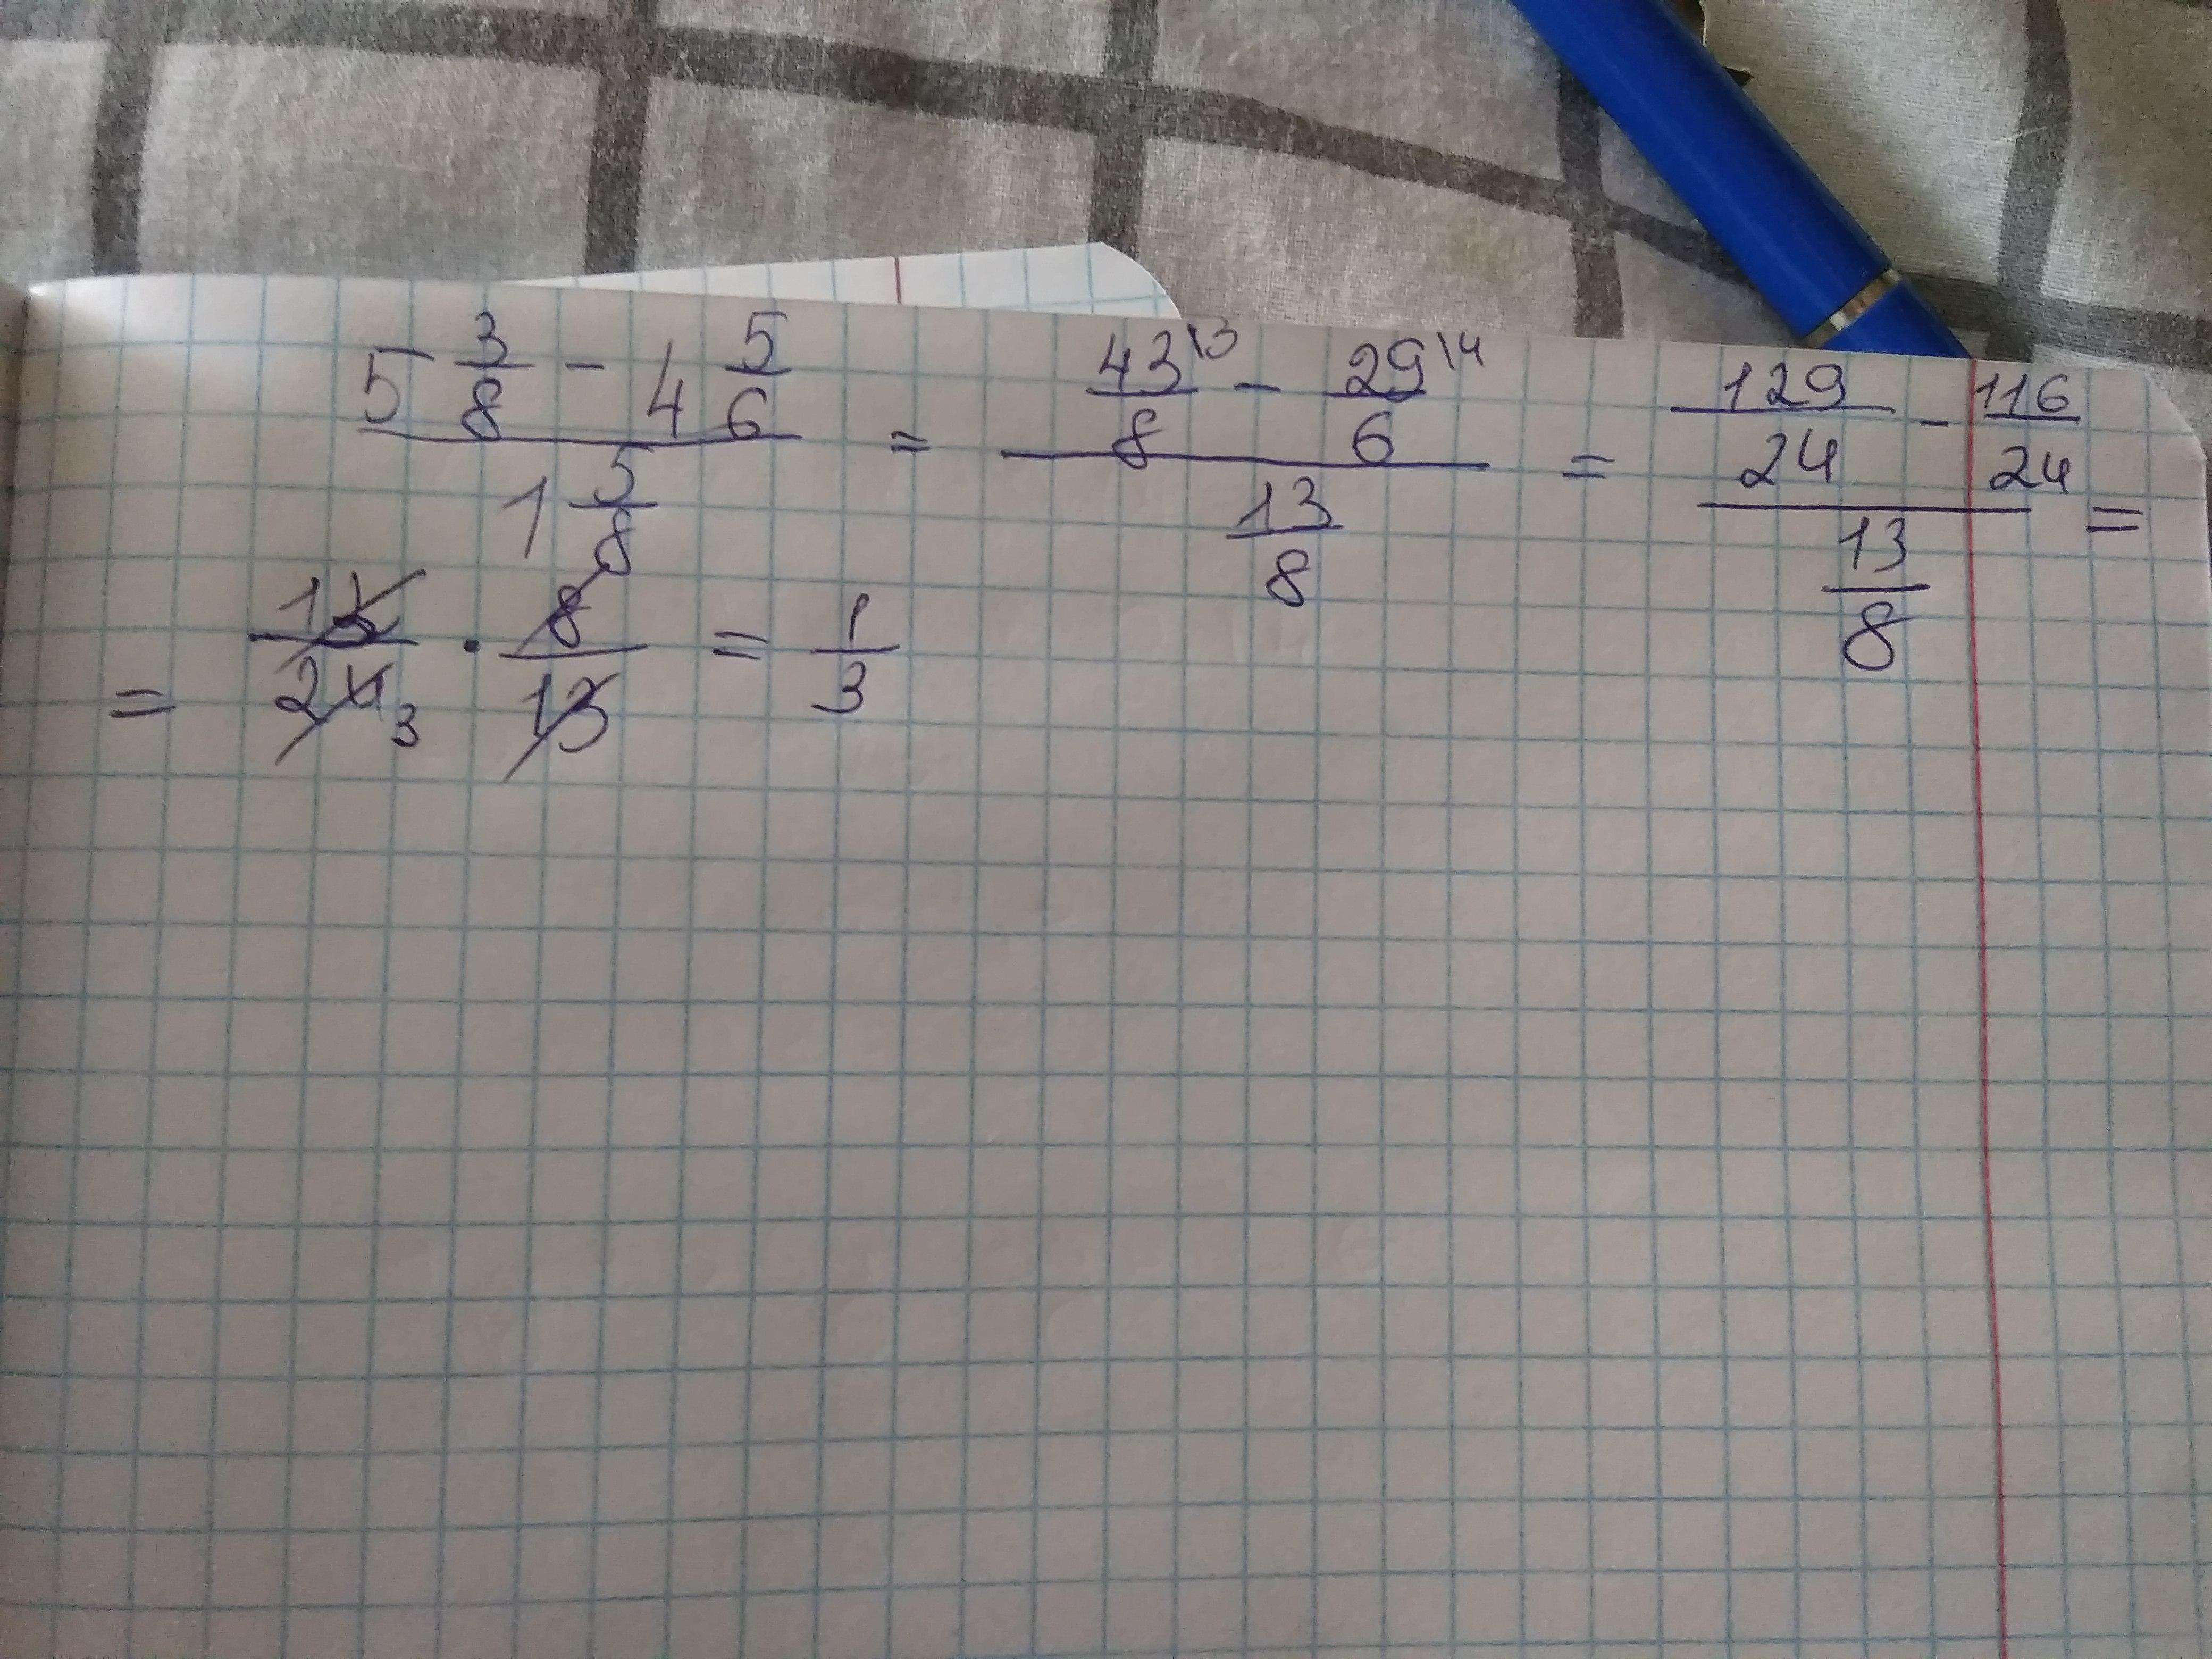 5 3/8 - 4 5/6 / 1 5/8 = 43\3/8 - 29\4/6 / 13/8 = 129/24 - 116/24 / 13/8 =
= 13/24 3 · 8/13 = 1/3